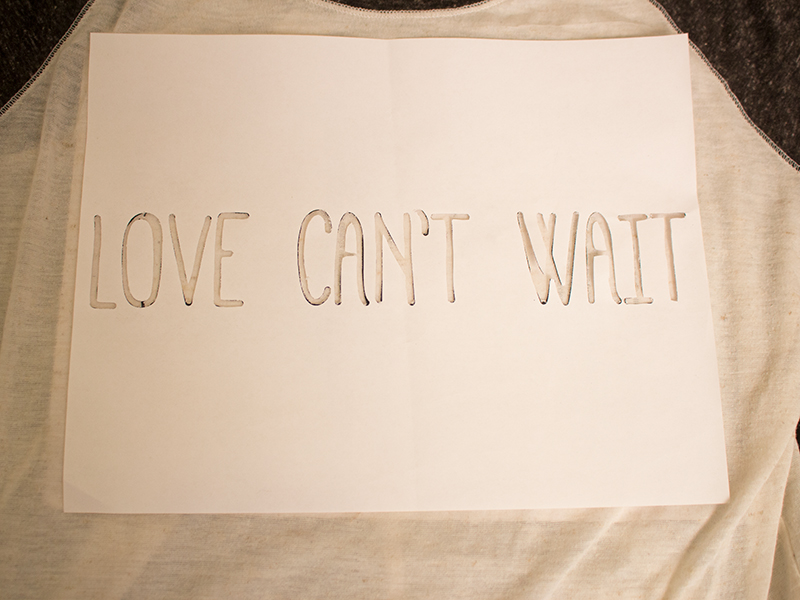 LOVE CAN'T WAIT